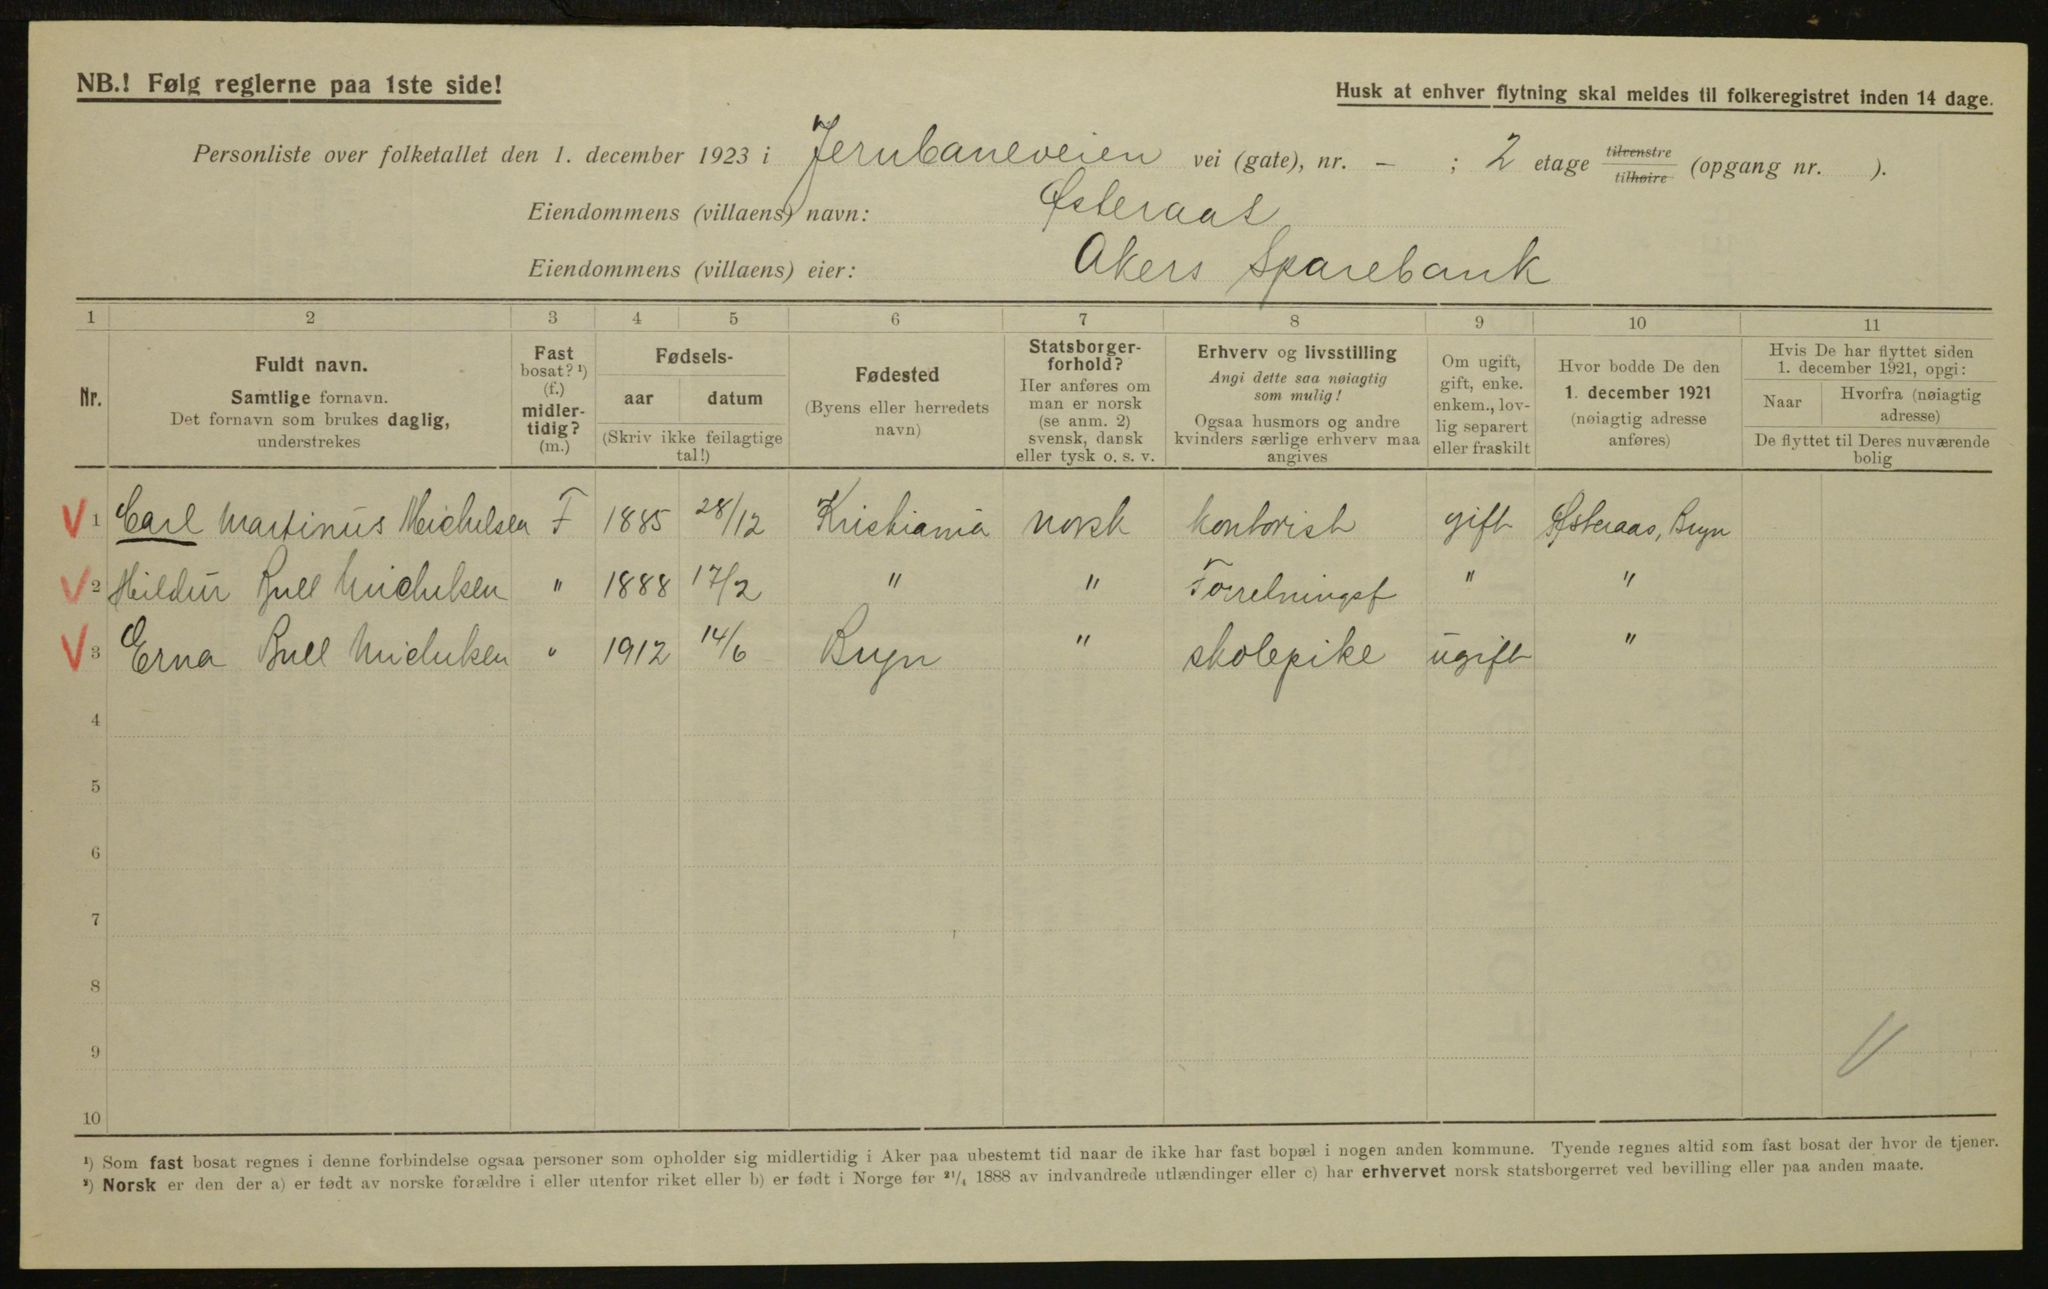 NB.! Følg reglerne paa 1ste side!
Husk at enhver flytning skal meldes til folkeregistret inden 14 dage.
Personliste over folketallet den 1. december 1923 i Jernbaneveien vei (gate), nr. – ; 2 etage tilvenstre tilhøire (opgang nr. ).
Eiendommens (villaens) navn: Østeraas
Eiendommens (villaens) eier: Akers Sparebank
1 2 3 4 5 6 7 8 9 10 11
Nr.
Fuldt navn.
Samtlige fornavn.
Det fornavn som brukes daglig,
understrekes
Fast
bosat? ¹)
(f.)
midler-
tidig?
(m.)
Fødsels-
aar datum
(Skriv ikke feilagtige
tal!)
Fødested
(Byens eller herredets
navn)
Statsborger-
forhold?
Her anføres om
man er norsk
(se anm. 2)
svensk, dansk
eller tysk o. s. v.
Erhverv og livsstilling
Angi dette saa nøiagtig
som mulig!
Ogsaa husmors og andre
kvinders særlige erhverv maa
angives
Om ugift,
gift, enke.
enkem., lov-
lig separert
eller fraskilt
Hvor bodde De den
1. december 1921
(nøiagtig adresse
anføres)
Hvis De har flyttet siden
1. december 1921, opgi:
Naar
Hvorfra (nøiagtig
adresse)
De flyttet til Deres nuværende
bolig
V 1 Carl Martinus Michelsen F 1885 28/12 Kristiania norsk kontorist gift Østeraas, Bryn
V 2 Hildur Bull Michelsen " 1888 17/2 " " Forretningsf " "
V 3 Erna Bull Michelsen " 1912 14/6 Bryn " skolepike ugift "
4
5
6
7
8
9
10
¹) Som fast bosat regnes i denne forbindelse ogsaa personer som opholder sig midlertidig i Aker paa ubestemt tid naar de ikke har fast bopæl i nogen anden kommune. Tyende regnes altid som fast bosat der hvor de tjener.
²) Norsk er den der a) er født av norske forældre i eller utenfor riket eller b) er født i Norge før ²¹/₄ 1888 av indvandrede utlændinger eller c) har erhvervet norsk statsborgerret ved bevilling eller paa anden maate.